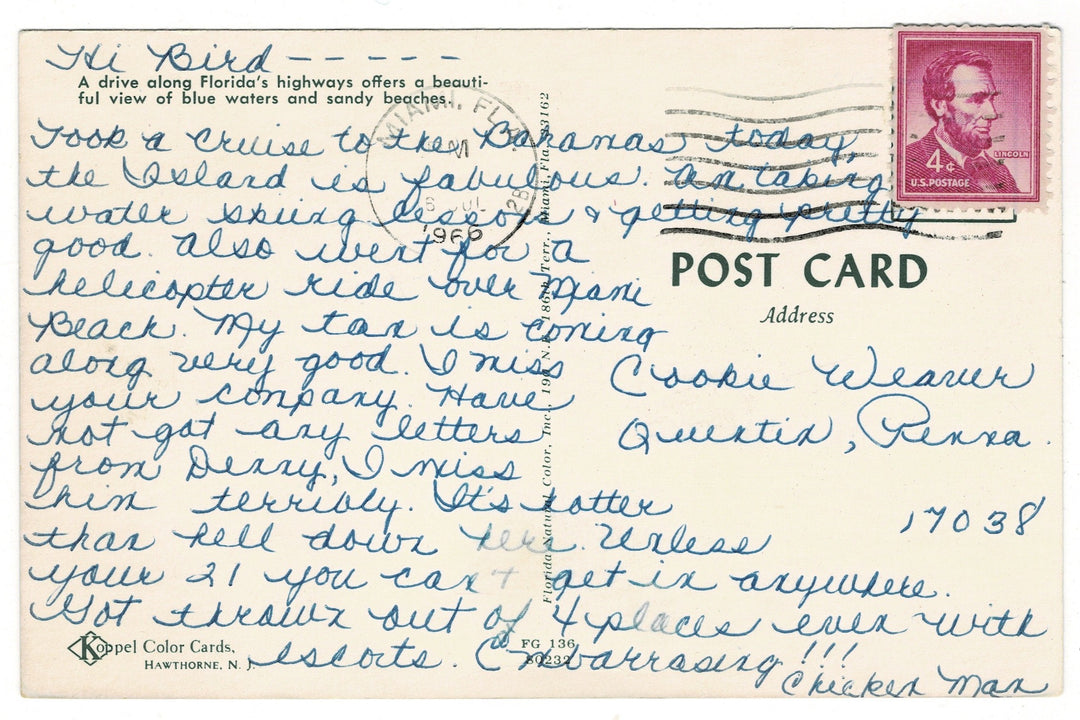 Hi Bird - - - - -
A drive along Florida's highways offers a beauti-
ful view of blue waters and sandy beaches.
Took a cruise to the Bahamas today,
the Island is fabulous. Am taking
water skiing lessons & getting pretty
good. Also went for a
helicopter ride over Miami
Beach. My tan is coming
along very good. I miss
your company. Have
not got any letters
from Denny, I miss
him terribly. It's hotter
than hell down here. Unless
your 21 you can't get in anywhere.
Got thrown out of 4 places even with
escorts. Embarrasing!!!
Chicken Man
Koppel Color Cards,
HAWTHORNE, N. J.
FG 136
80232
Florida Natural Color, Inc., N.E. 186th Terr., Miami, Fla. 33162
MIAMI, FLA.
1966
LINCOLN
4¢
U.S. POSTAGE
POST CARD
Address
Cookie Weaver
Quentin, Penna.
17038